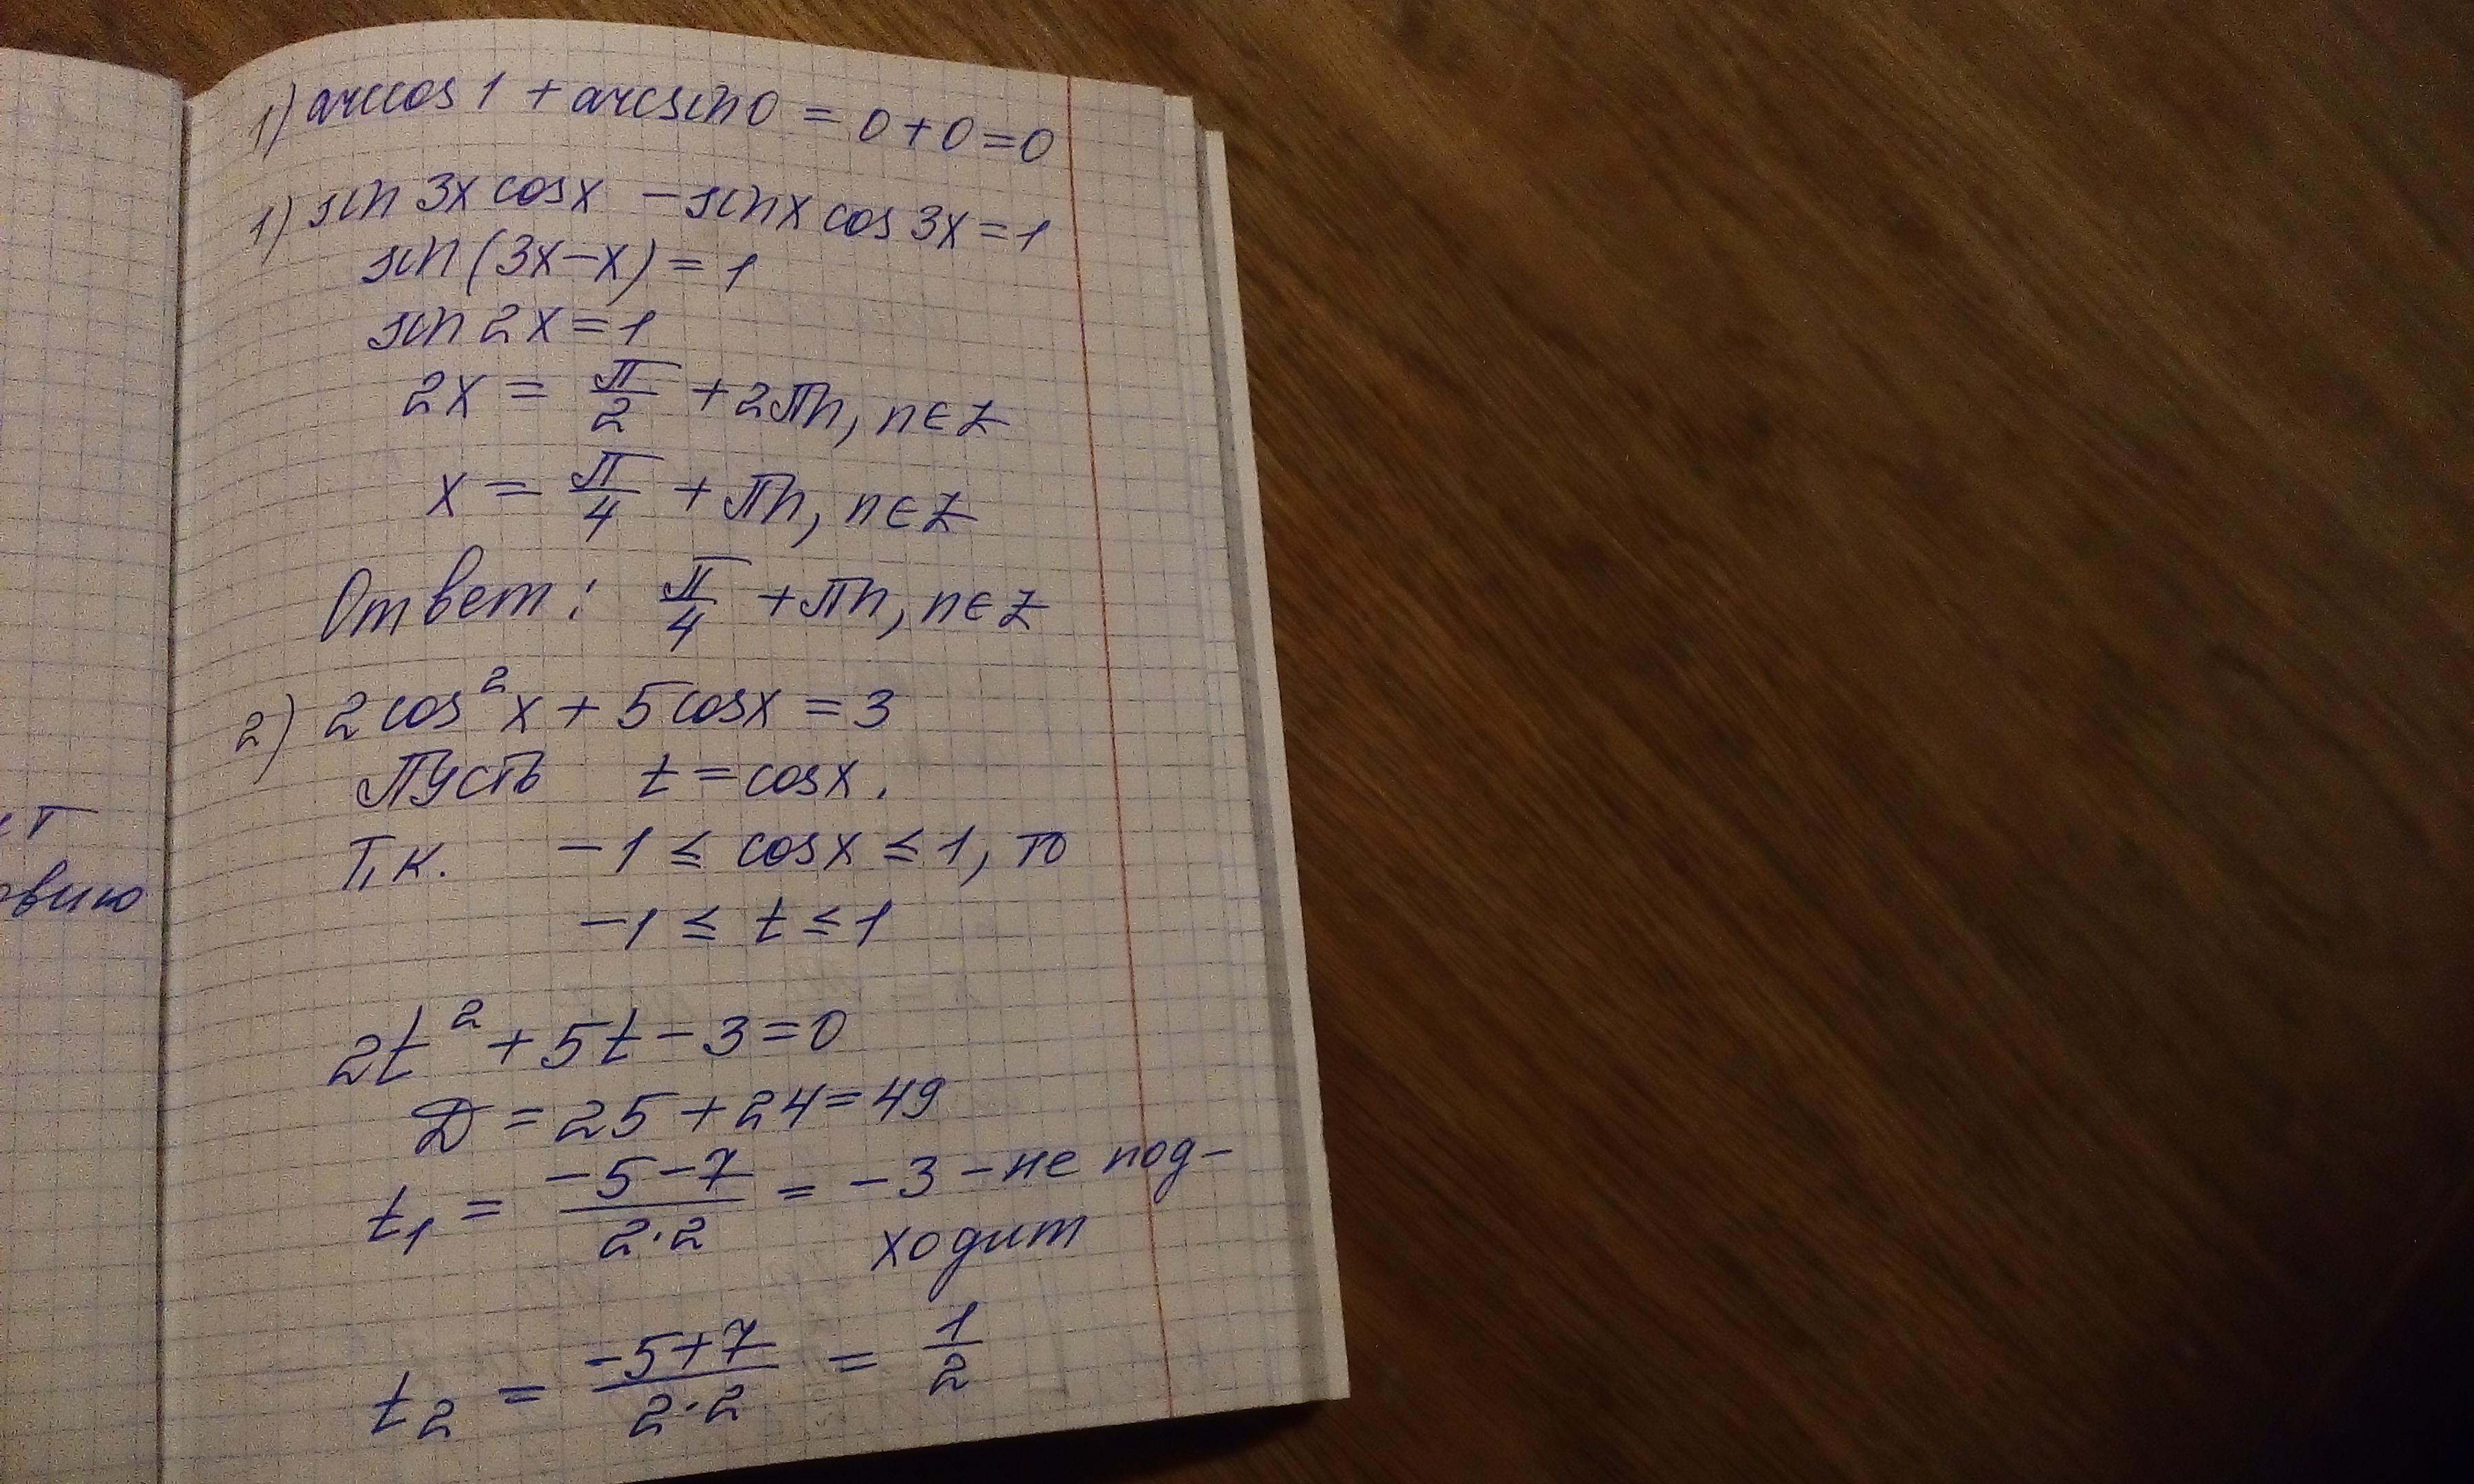 1) arccos 1 + arcsin 0 = 0 + 0 = 0
1) sin 3x cosx - sinx cos 3x = 1
sin (3x - x) = 1
sin 2x = 1
2x = π/2 + 2πn, n∈Z
x = π/4 + πn, n∈Z
Ответ: π/4 + πn, n∈Z
2) 2cos²x + 5cosx = 3
Пусть t = cosx.
Т.к. -1 ≤ cosx ≤ 1, то
-1 ≤ t ≤ 1
2t² + 5t - 3 = 0
D = 25 + 24 = 49
t₁ = (-5-7)/(2·2) = -3 - не под-
ходит
t₂ = (-5+7)/(2·2) = 1/2